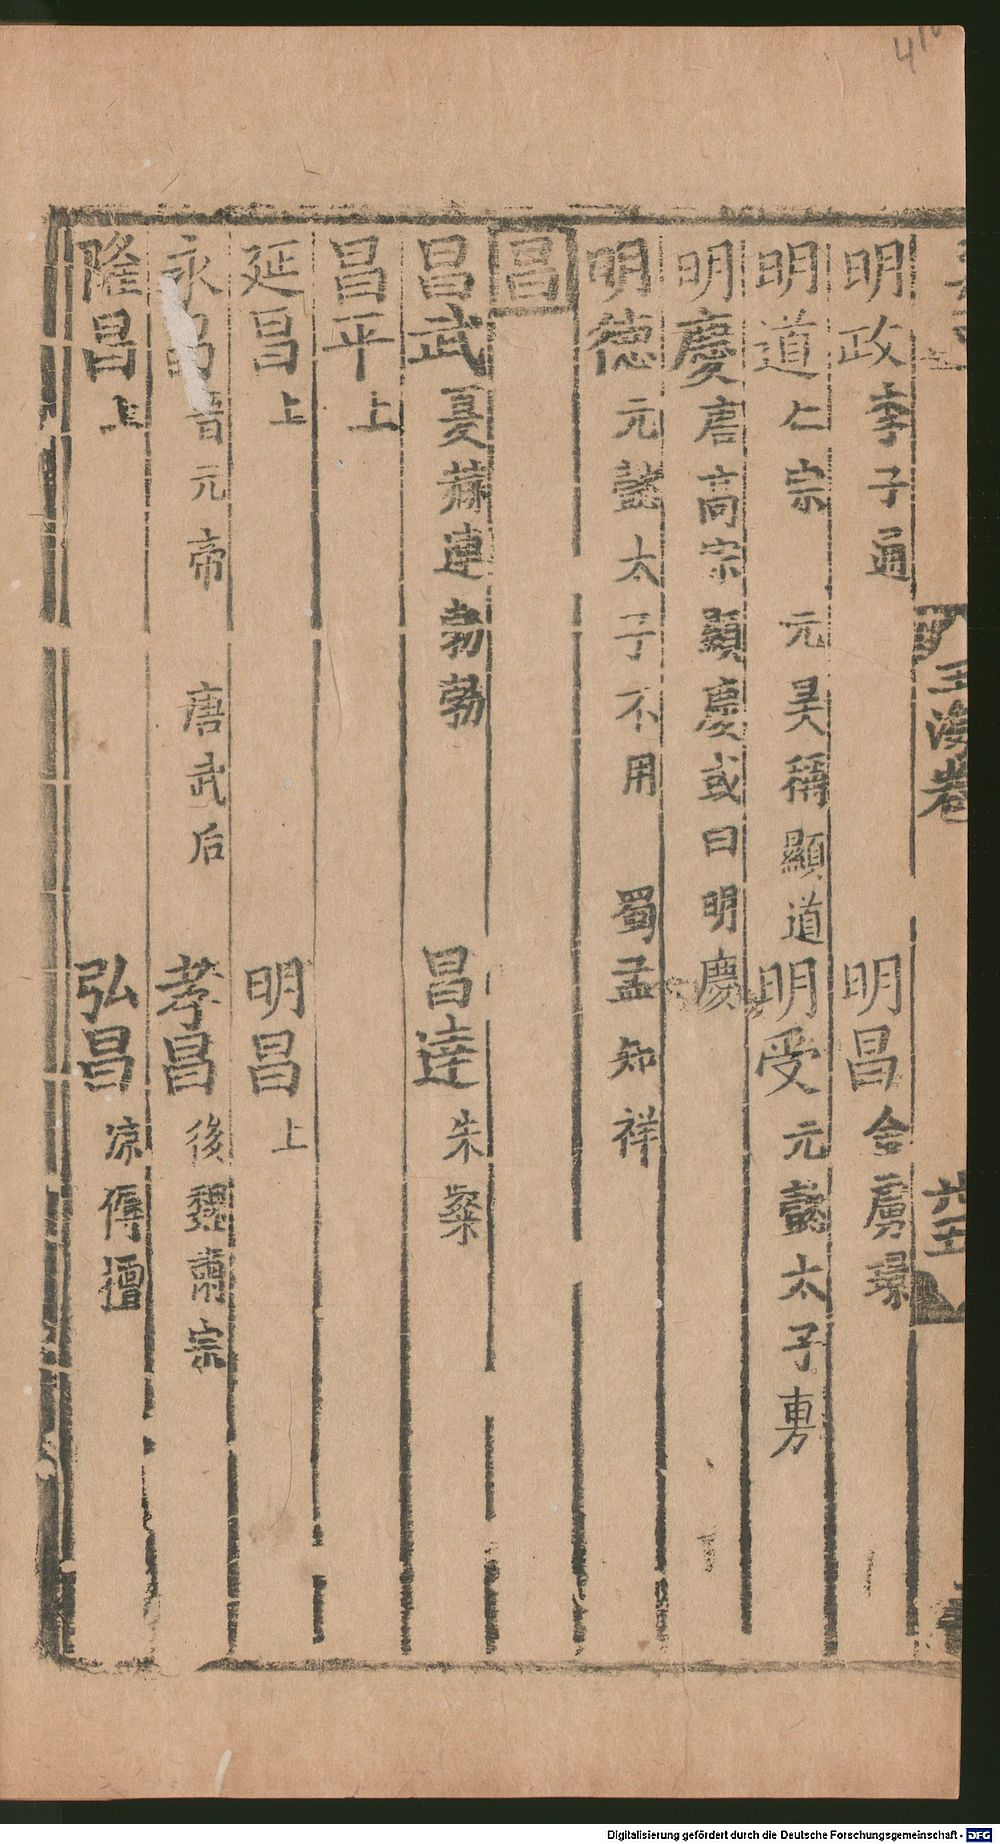 玉海卷
六五
明政 李子通 明昌 金虜璟
明道 仁宗 元昊稱顯道 明受 元懿太子旉
明慶 唐高宗顯慶或曰明慶
明德 元懿太子不用 蜀孟知祥
昌
昌武 夏赫連勃勃 昌達 朱粲
昌平 上
延昌 上 明昌 上
永昌 晉元帝 唐武后 孝昌 後魏肅宗
隆昌 上 弘昌 凉傉檀
Digitalisierung gefördert durch die Deutsche Forschungsgemeinschaft - DFG